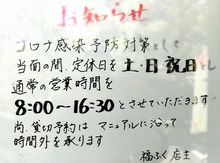 お知らせ
コロナ感染予防対策として
当面の間、定休日を土・日・祝日とし
通常の営業時間を
8:00〜16:30とさせていただきます
尚、貸切予約はマニュアルに沿って
時間外を承ります
福ふく 店主